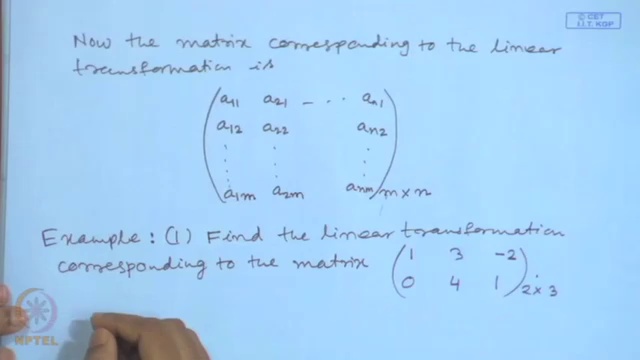 © CET
I.I.T. KGP
Now the matrix corresponding to the linear
transformation is
a11 a21 - ··· an1
a12 a22 an2
a1m a2m anm m×n
Example: (1) Find the linear transformation
corresponding to the matrix
1 3 -2
0 4 1 2×3
NPTEL